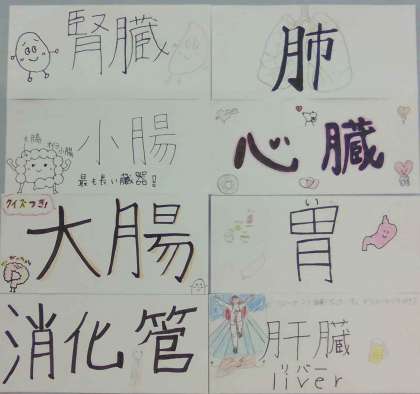 腎臓
肺
大腸
小腸
小腸
最も長い臓器!
心臓
クイズつき!
大腸
い
胃
消化管
肝臓
リバー
liver